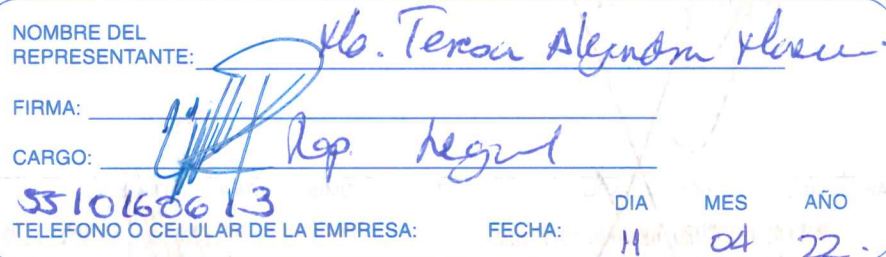 NOMBRE DEL
REPRESENTANTE: Ma. Teresa Alejandra
FIRMA:
CARGO: Rep. Legal
5510160613
TELEFONO O CELULAR DE LA EMPRESA: FECHA: DIA MES AÑO
11 04 22.